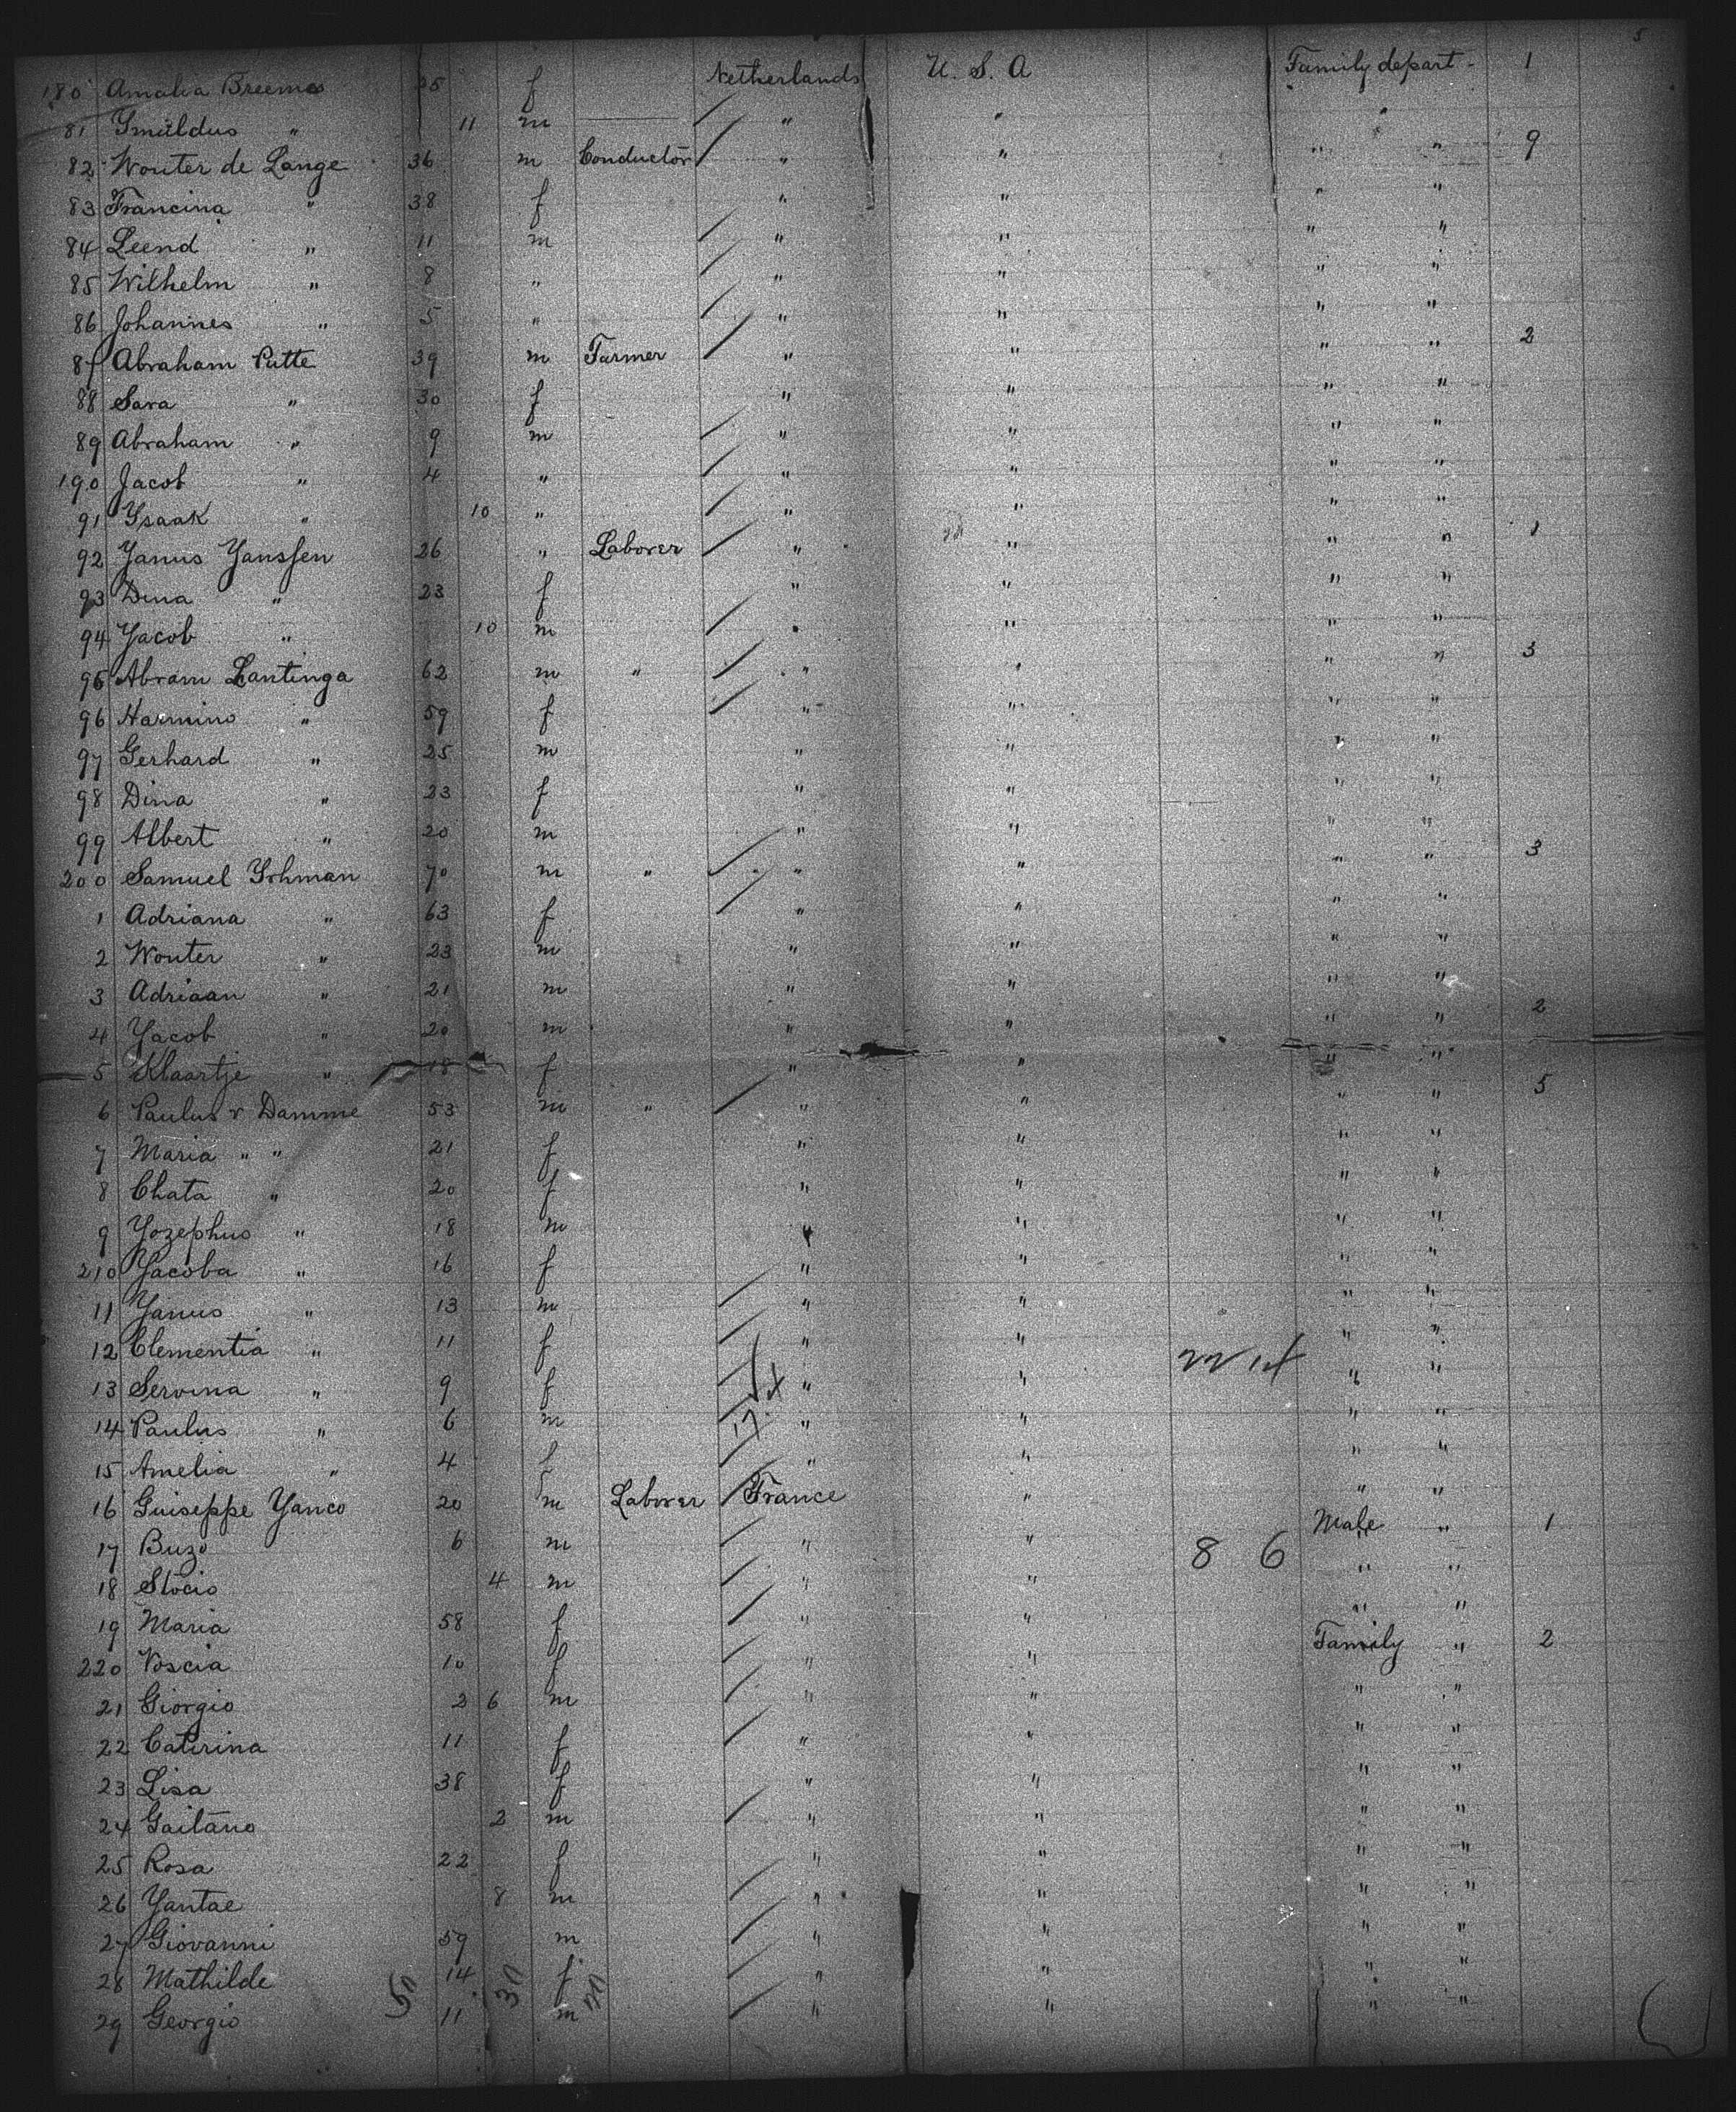 5
180 Amalia Breemes 35 f Netherlands U. S. A Family depart - 1
81 " 11 m " " "
82 Wouter de Lange 36 m Conductor " " " " 9
83 Francina " 38 f " " " "
84 Leend " 11 m " " " "
85 Wilhelm " 8 " " " " "
86 Johannes " 5 " " " " "
87 Abraham Putte 39 m Farmer " " " " 2
88 Sara " 30 f " " " "
89 Abraham " 9 m " " " "
190 Jacob " 4 " " " " "
91 Ysaak " 10 " " " " "
92 Yanus Yanssen 26 " Laborer " " " " 1
93 Dina " 23 f " " " "
94 Yacob " 10 m " " " "
95 Abram Lantinga 62 m " " " " " 3
96 Harmino " 59 f " " " "
97 Gerhard " 25 m " " " "
98 Dina " 23 f " " " "
99 Albert " 20 m " " " "
200 Samuel Yrhman 70 m " " " " " 3
1 Adriana " 63 f " " " "
2 Wouter " 23 m " " " "
3 Adriaan " 21 m " " " "
4 Yacob " 20 m " " " " 2
5 Klaartje " 18 f " " " "
6 Paulus v Damme 53 m " " " " " 5
7 Maria " " 21 f " " " "
8 Chata " 20 f " " " "
9 Yozephus " 18 m " " " "
210 Yacoba " 16 f " " " "
11 Yanus " 13 m " " " "
12 Clementia " 11 f " " " "
13 Servina " 9 f " " " "
14 Paulus " 6 m " " " "
15 Amelia " 4 f " " " "
16 Guiseppe Yanco 20 m Laborer France " " "
17 Buzo 6 m " " 8 6 Male " 1
18 Stocio 4 m " " " "
19 Maria 58 f " " " "
220 Voscia 10 f " " Family " 2
21 Giorgio 2 6 m " " " "
22 Caterina 11 f " " " "
23 Lisa 38 f " " " "
24 Gaitano 2 m " " " "
25 Rosa 22 f " " " "
26 Yantae 8 m " " " "
27 Giovanni 59 m " " " "
28 Mathilde 14 f " " " "
29 Georgio 11 m " " " "